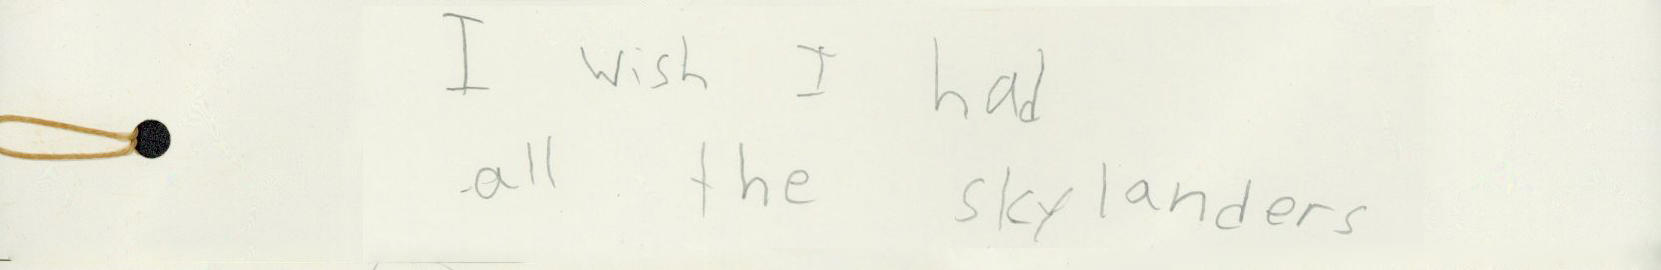 I wish I had
all the skylanders